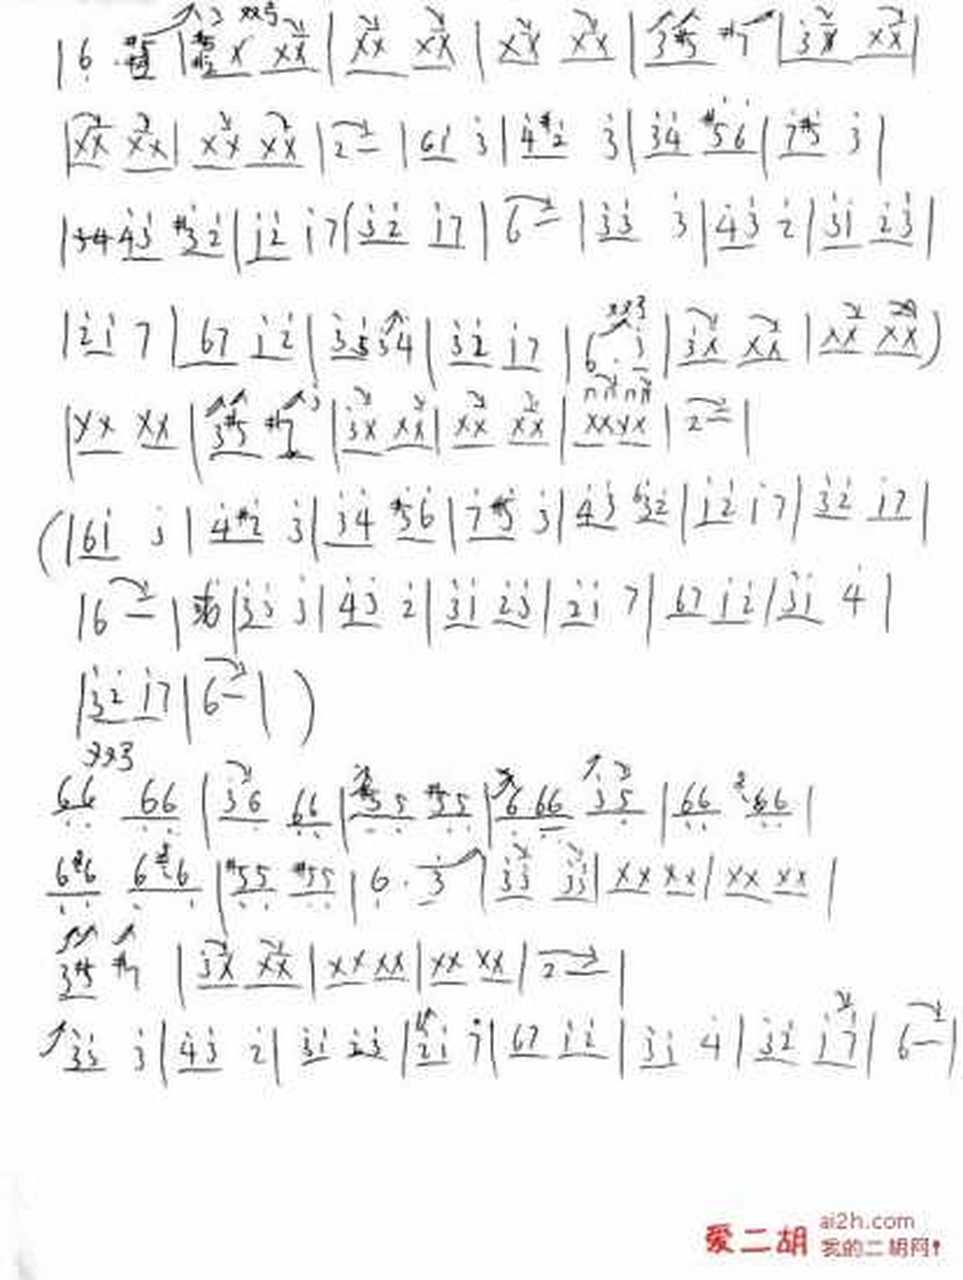 |6 · #5 | x xx | xx xx | xx xx | 3#5 #7 | 3x xx |
|xx xx | xx xx | 2 – | 61 3 | 4#2 3 | 34 #56 | 7#5 3 |
|3443 #32 | 12 17 | 32 17 | 6 – | 33 3 | 43 2 | 31 23 |
|21 7 | 67 12 | 3534 | 32 17 | 6 · 3 | 3x xx | xx xx )
|xx xx | 3#5 #7 | 3x xx | xx xx | xxxx | 2 – |
( |61 3 | 4#2 3 | 34 #56 | 7#5 3 | 43 32 | 12 17 | 32 17 |
|6 – | 33 3 | 43 2 | 31 23 | 21 7 | 67 12 | 31 4 |
|32 17 | 6 – | )
66 66 | 36 66 | 55 #55 | 6 66 35 | 66 66 |
66 6 6 | #55 #55 | 6 · 3 | 33 33 | xx xx | xx xx |
3#5 #7 | 3x xx | xx xx | xx xx | 2 – |
33 3 | 43 2 | 31 23 | 21 7 | 67 12 | 31 4 | 32 17 | 6 – |
爱二胡 ai2h.com
我的二胡网!